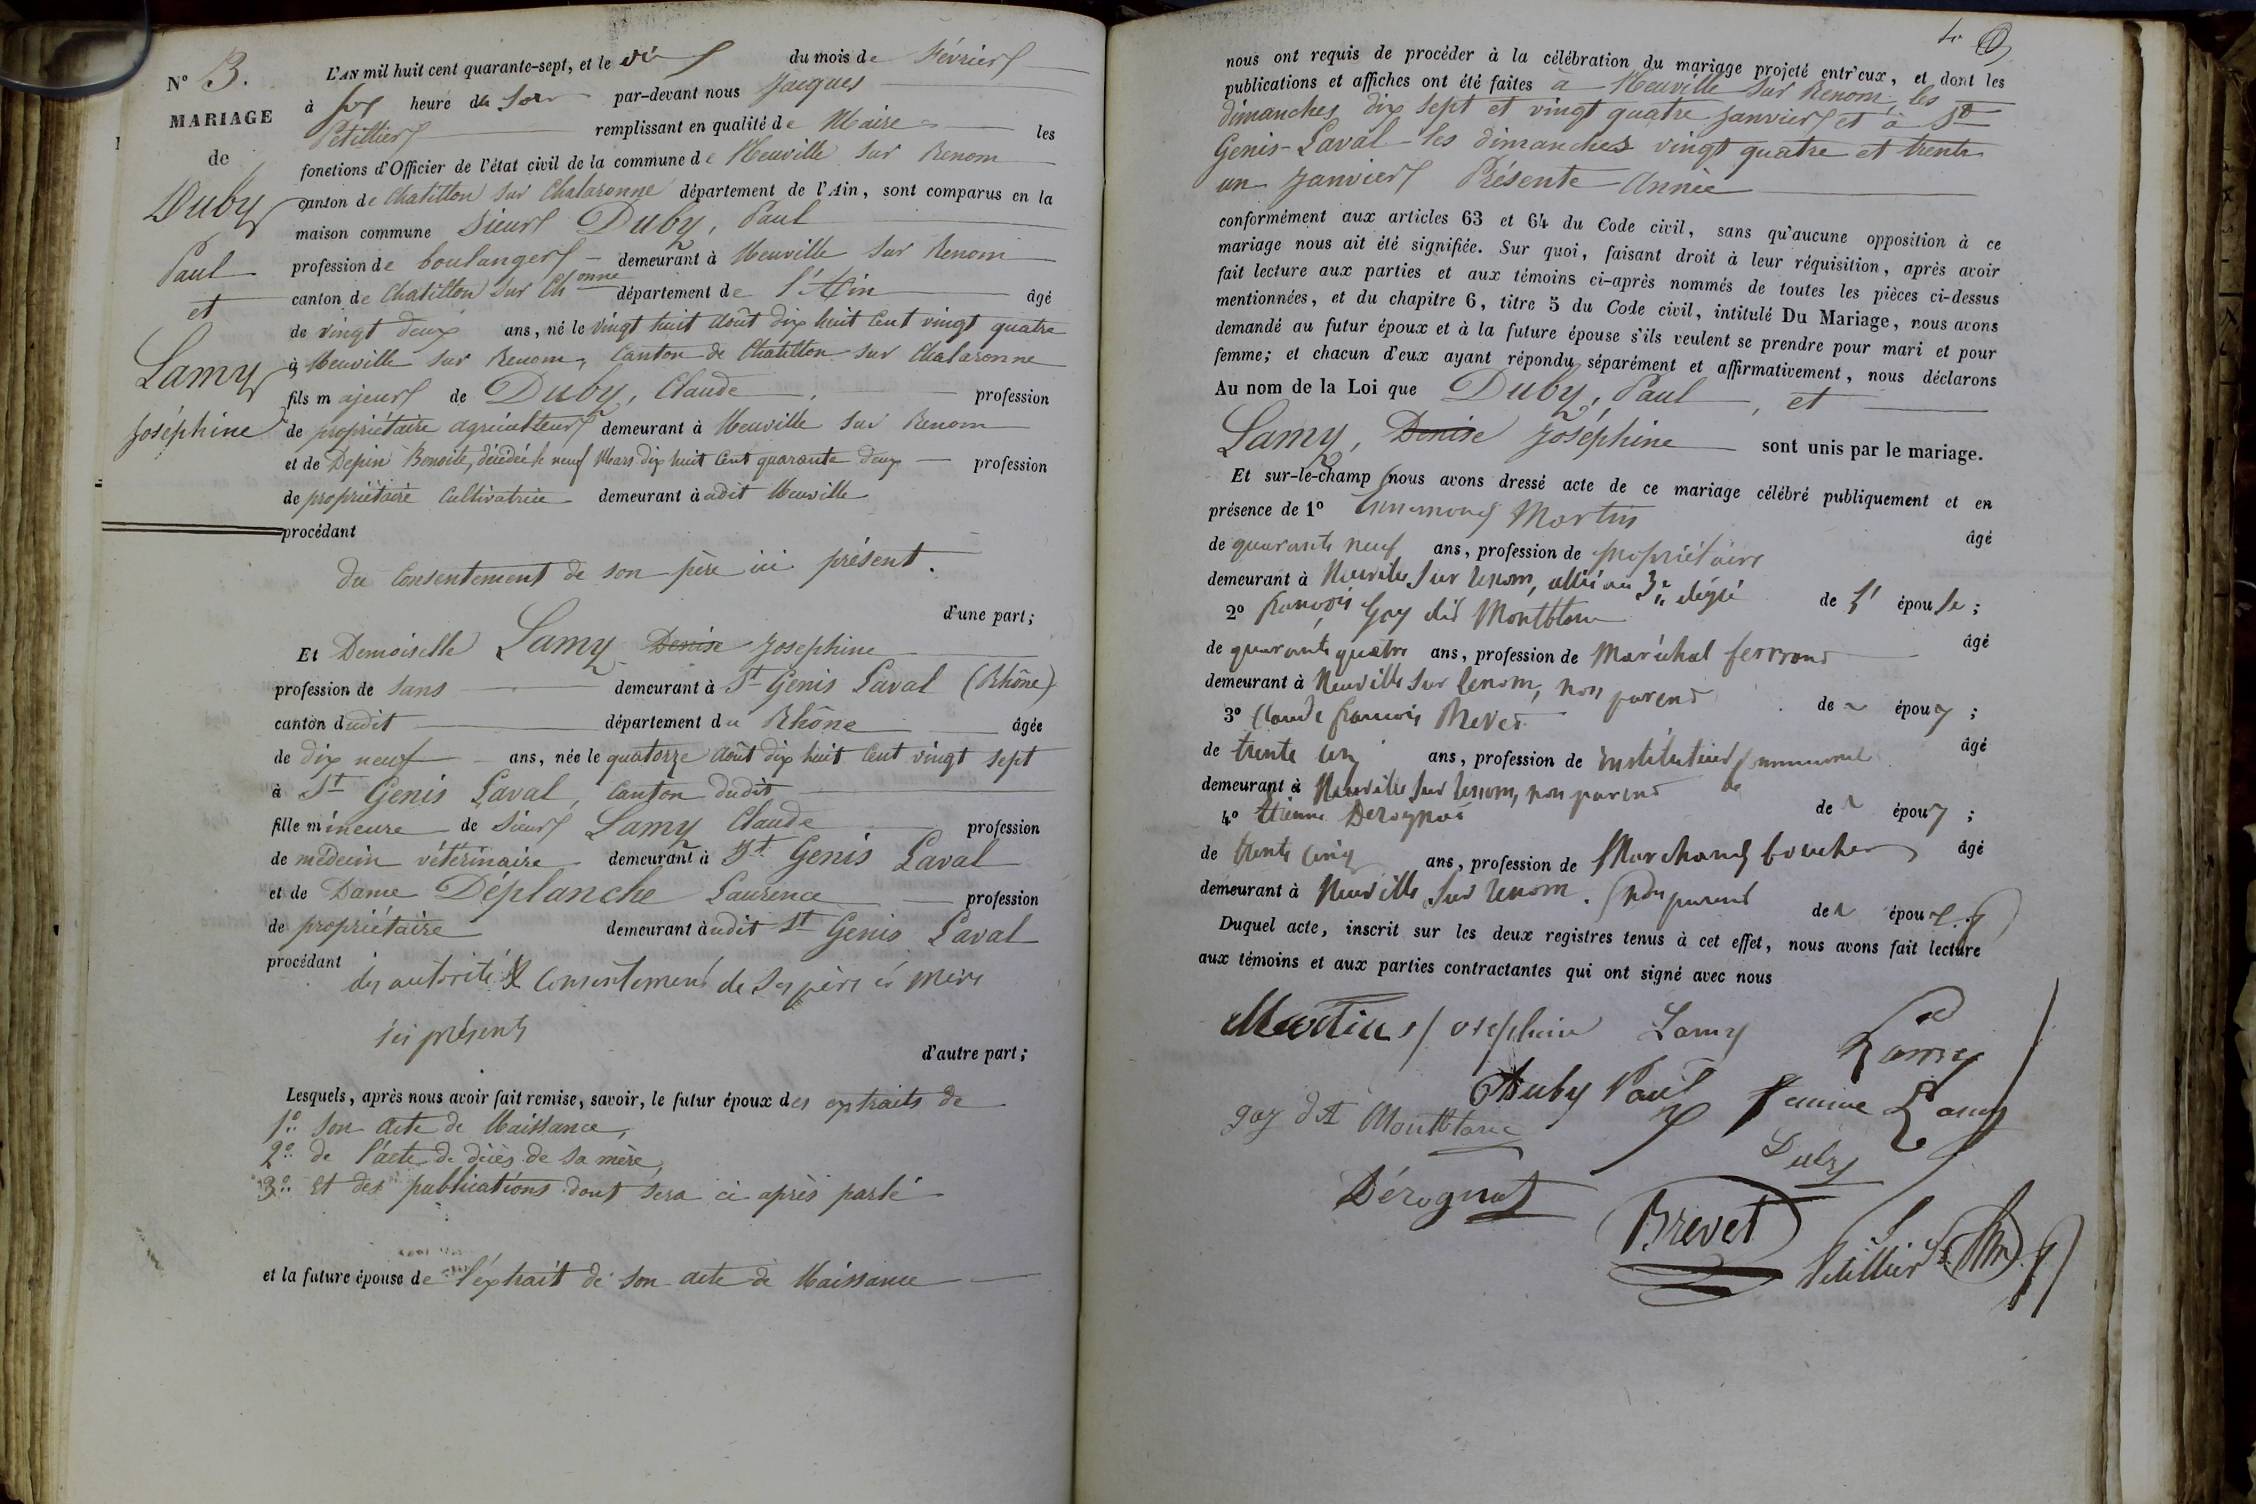 N° 3.
MARIAGE
de
Duby
Paul
et
Lamy
Joséphine
L'AN mil huit cent quarante-sept, et le dix du mois de Février
à six heure du soir par-devant nous Jacques
Petillier remplissant en qualité de Maire les
fonctions d'Officier de l'état civil de la commune de Neuville sur Renom
canton de Chatillon sur Chalaronne département de l'Ain, sont comparus en la
maison commune Sieur Duby, Paul
profession de boulanger demeurant à Neuville sur Renom
canton de Chatillon sur Chonne département de l'Ain âgé
de vingt deux ans, né le vingt huit Août dix huit cent vingt quatre
à Neuville sur Renom, Canton de Chatillon sur Chalaronne
fils majeur de Duby, Claude, profession
de propriétaire agriculteur demeurant à Neuville sur Renom
et de Depin Benoite, décédée le neuf Mars dix huit cent quarante deux profession
de propriétaire Cultivatrice demeurant audit Neuville
procédant
du Consentement de son père ici présent.
d'une part;
Et Demoiselle Lamy Denise Josephine
profession de sans demeurant à St Genis Laval (Rhône)
canton dudit département du Rhône âgée
de dix neuf ans, née le quatorze Août dix huit cent vingt sept
à St Genis Laval, Canton dudit
fille mineure de Sieur Lamy Claude profession
de médecin vétérinaire demeurant à St Genis Laval
et de Dame Déplanche Laurence profession
de propriétaire demeurant audit St Genis Laval
procédant des autorité & Consentement de ses père et mère
ici présents
d'autre part;
Lesquels, après nous avoir fait remise, savoir, le futur époux des extraits de
1° son acte de Naissance,
2° de l'acte de décès de sa mère,
3° et des publications dont sera ci après parlé
et la future épouse de l'extrait de son acte de Naissance
4
nous ont requis de procéder à la célébration du mariage projeté entr'eux, et dont les
publications et affiches ont été faites à Neuville sur Renom, les
dimanches dix sept et vingt quatre janvier et à St
Genis-Laval les dimanches vingt quatre et trente
un janvier Présente Année
conformément aux articles 63 et 64 du Code civil, sans qu'aucune opposition à ce
mariage nous ait été signifiée. Sur quoi, faisant droit à leur réquisition, après avoir
fait lecture aux parties et aux témoins ci-après nommés de toutes les pièces ci-dessus
mentionnées, et du chapitre 6, titre 5 du Code civil, intitulé Du Mariage, nous avons
demandé au futur époux et à la future épouse s'ils veulent se prendre pour mari et pour
femme; et chacun d'eux ayant répondu séparément et affirmativement, nous déclarons
Au nom de la Loi que Duby, Paul, et
Lamy, Denise Joséphine sont unis par le mariage.
Et sur-le-champ nous avons dressé acte de ce mariage célébré publiquement et en
présence de 1° Martin
âgé
de quarante neuf ans, profession de propriétaire
demeurant à Neuville sur Renom, allié au 3e degré de l'épouse;
2° françois Gay dit Montblanc
âgé
de quarante quatre ans, profession de Maréchal ferrand
demeurant à Neuville sur Renom, non parend de époux;
3° Claude francois Brevet
âgé
de trente cinq ans, profession de instituteur communal
demeurant à Neuville sur Renom, non parend de époux;
4° Etienne Derognat
âgé
de trente cinq ans, profession de Marchand boucher
demeurant à Neuville sur Renom. Non parend des époux.
Duquel acte, inscrit sur les deux registres tenus à cet effet, nous avons fait lecture
aux témoins et aux parties contractantes qui ont signé avec nous
Martin Josephine Lamy Lamy
Duby Paul femme Lamy
gay dit Montblanc
Duby
Dérognat
Brevet
Petillier